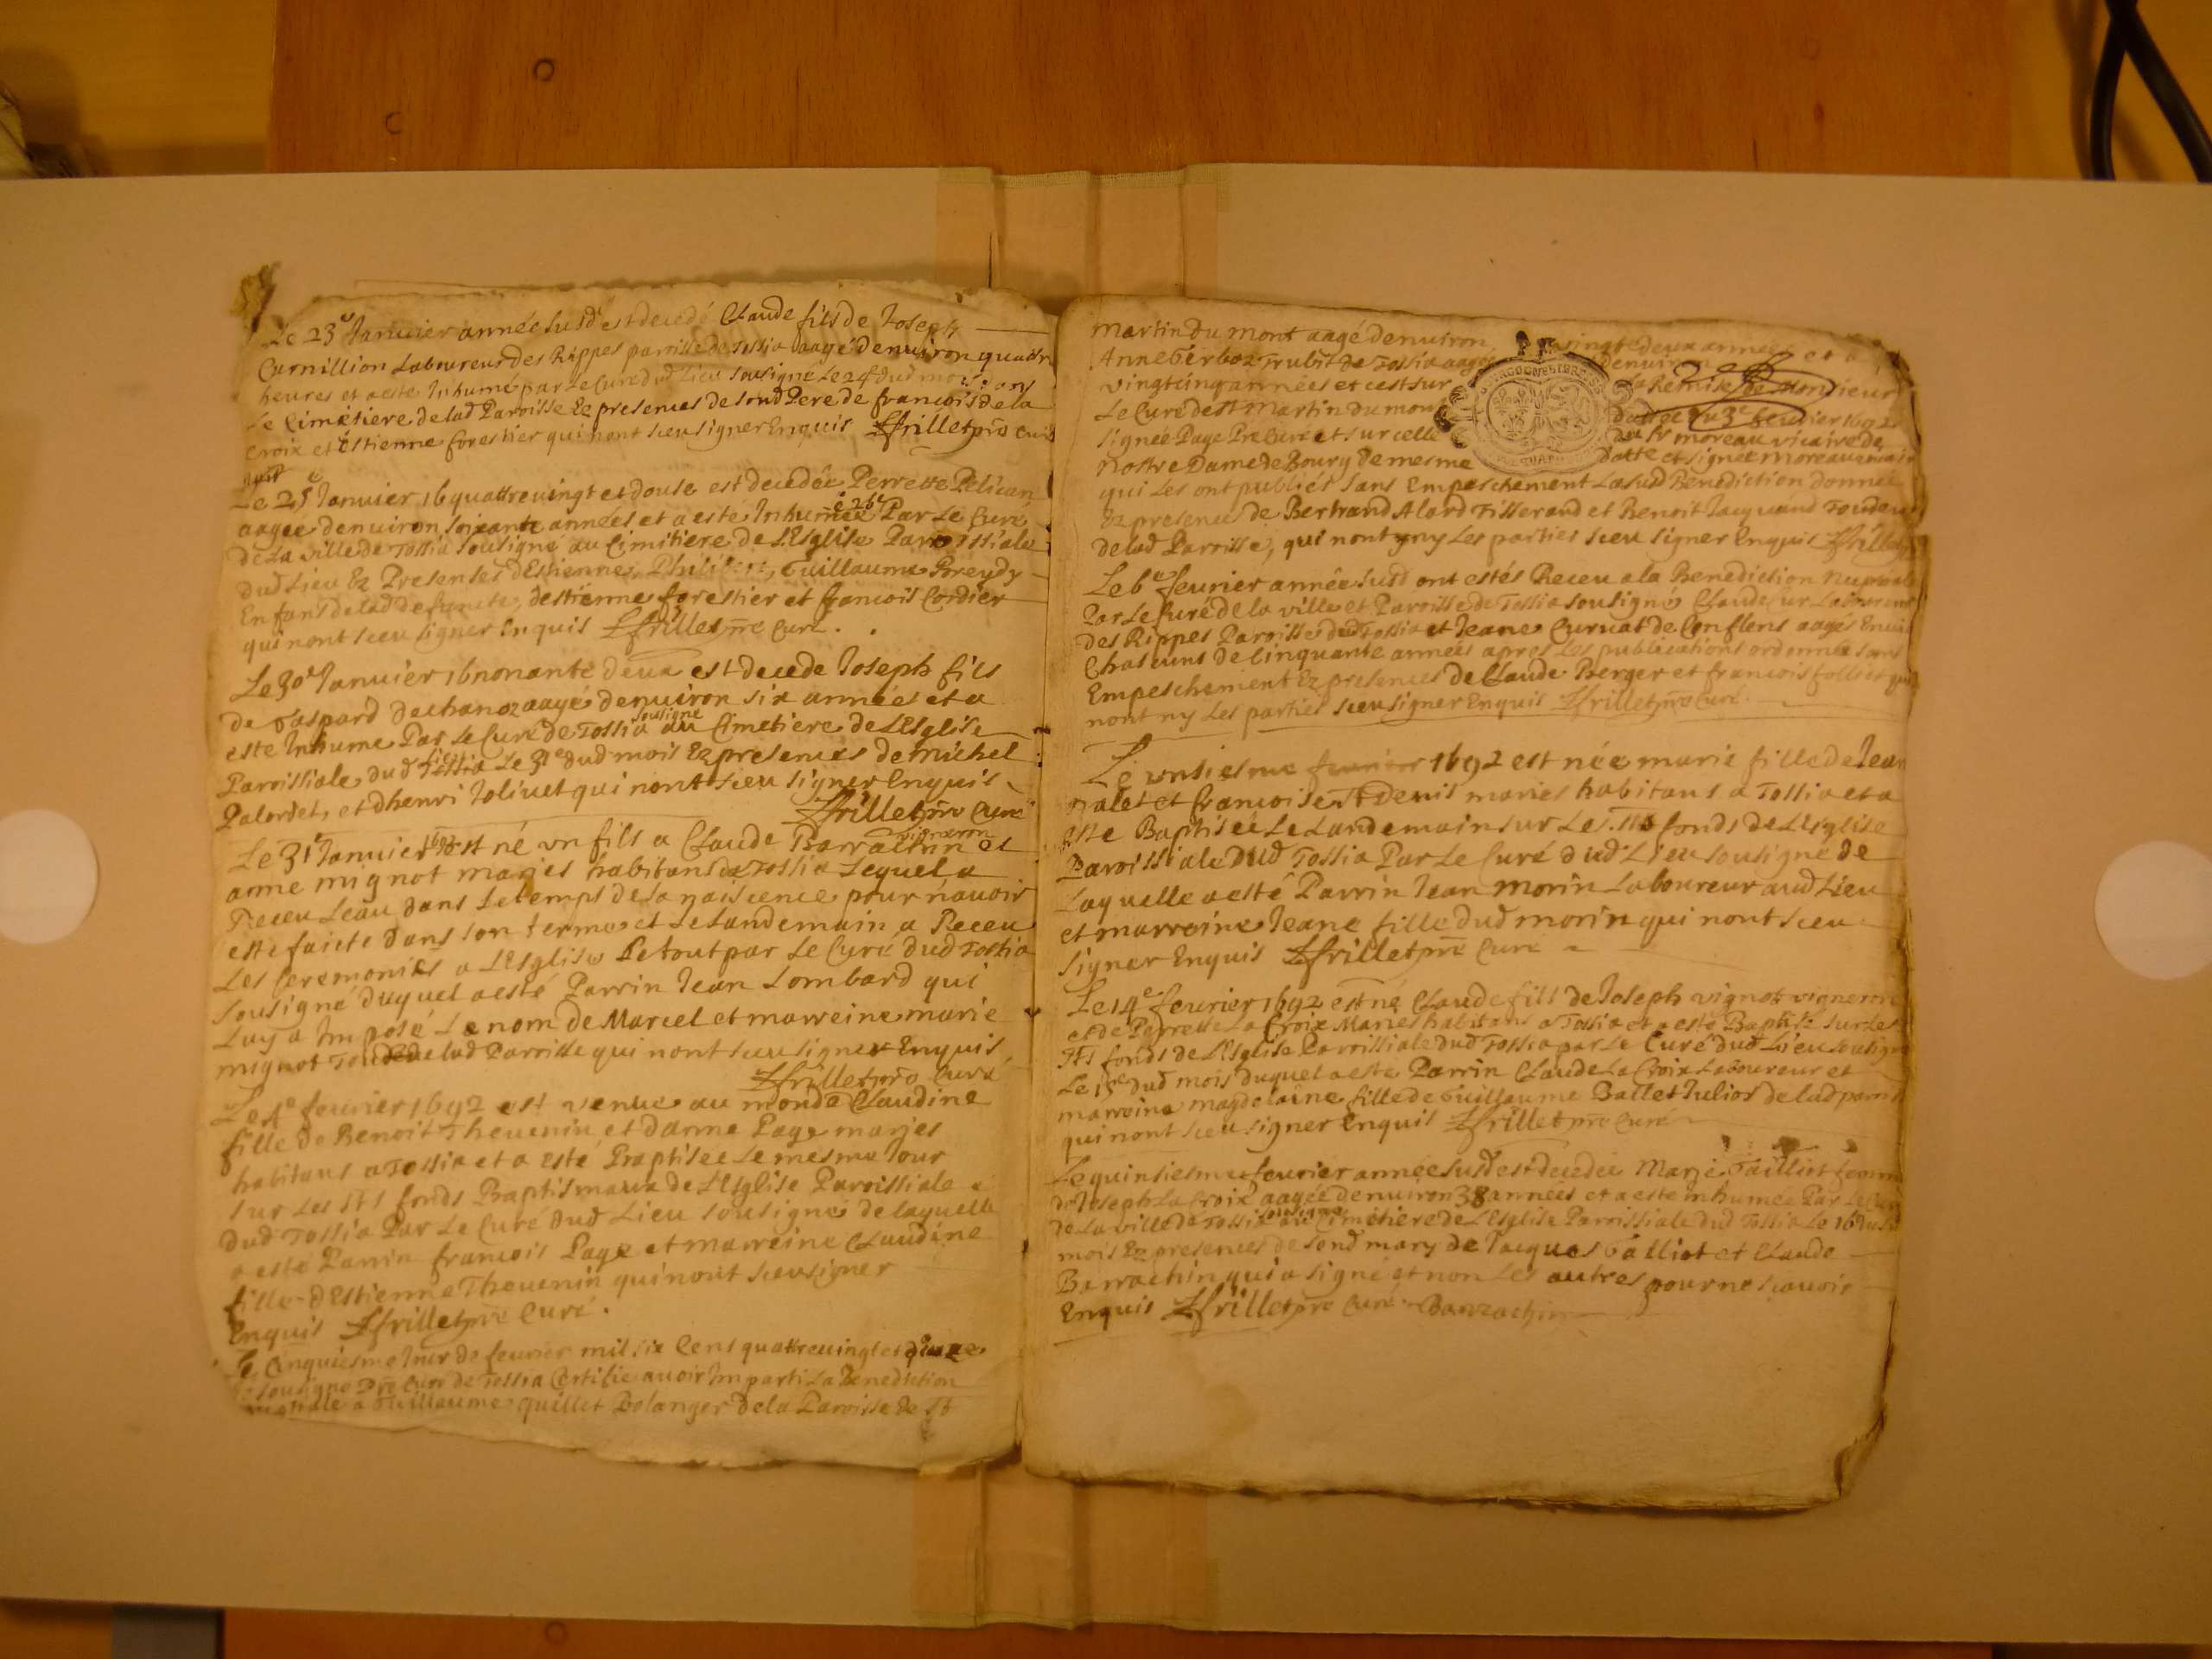 Le 23e Januier année susd est decedé Claude fils de Joseph
Curnillion Laboureur des Rippes paroisse de Tossia aagé denuiron quattre
heures et a este Inhumé par Le Curé dud Lieu sousigné Le 24e dud mois dans
Le Cimetiere de lad Paroisse Ez presences de soud Pere de francois de la
croix et Estienne forestier qui nont sceu signer Enquis Ffrillet pre curé
Le 25e Januier 16 quattreuingt et douse est decedée Perrette Pelican
aagee denuiron soixante années et a este Inhumée Le 26e Par Le Curé
de La Ville de Tossia sousigné au Cimitiere de L'Esglise Parroissiale
dud Lieu Ez Presenses dEstienne, Guillaume Poreydy
Enfans de lad defuncte, destienne forestier et francois Cordier
qui nont sceu signer Enquis Ffrillet pre Curé.
Le 30e Januier 16 nonante deux est decede Joseph fils
de Gaspard Dechanoz aagé denuiron six années et a
este Inhume Par Le Curé de Tossia sousigné au Cimetiere de L'Esglise
Paroissiale dud Tossia Le 31e dud mois Ez presences de michel
Palordet, et dhenri Joliuet qui nont sceu signer Enquis
Ffrillet pre Curé
Le 31e Januier 1692 est né vn fils a Claude Barrachin vigneron et
anne mignot maries habitans a Tossia Lequel a
Receu Leau dans Le temps de sa naiscence pour n'auoir
este faicte dans son terme et Le Landemain a Receu
Les Ceremonies a L'Esglise Le tout par Le Curé dud Tossia
sousigné duquel a esté Parrin Jean Lombard qui
Luy a Imposé Le nom de Marcel et marreine marie
mignot Tous de lad Parroisse qui nont sceu signer Enquis
Ffrillet pre Curé
Le 4e feurier 1692 est venue au monde Claudine
fille de Benoit Theuenin et danne Page maries
habitans a Tossia et a esté Baptisée Le mesme Jour
sur Les Sts fonds Baptismaux de L'Esglise Paroissiale
dud Tossia Par Le Curé dud Lieu sousigné de laquelle
a esté Parrin francois Page et marreine Claudine
fille dEstienne Theuenin qui nont sceu signer
Enquis Ffrillet pre Curé.
Le Cinquiesme Jour de feurier mil six Cens quattreuingt et douze
Je sousigné Pre Curé de Tossia Certifie auoir Imparti La Benediction
nuptiale a Guillaume quillet Bolanger de la Paroisse de St
martin du mont aagé denuiron vingt deux années et a
Anne Berboz Trubit de Tossia aagée denuiron
vingt cinq années et cest sur La Remise de Monsieur
Le Curé de St Martin du mont dattée du 3e feurier 1692
signée Page Pre Curé et sur celle du Sr moreau vicaire de
nostre Dame de Bourg de mesme datte et signée moreau vicaire
qui Les ont publiés sans Empeschement Lasusd Benediction donnée
Ez presences de Bertrand Alard Tisserand et Benoit Jacquand
de lad Paroisse, qui nont ny Les parties sceu signer Enquis Ffrillet
Le 6e feurier année susd ont estés Receu a la Benediction Nuptiale
Par Le Curé de la ville et Paroisse de Tossia sousigné Claude Cur Laboureur
des Rippes Paroisse dud Tossia et Jeane Curuat de Conflens aagés Enuiron
Chascuns de Cinquante années apres Les publications ordonnée sans
Empeschement Ez presences de Claude Berger et francois folliet qui
nont ny Les parties sceu signer Enquis Ffrillet pre Curé.
Le vnsiesme feurier 1692 est née marie fille de Jean
nalet et francoise St Denis maries habitans a Tossia et a
este Baptisée Le Landemain sur Les Sts fonds de L'Esglise
Paroissiale dud Tossia Par Le Curé dud Lieu sousigné de
Laquelle a esté Parrin Jean morin Laboureur aud Lieu
et marreine Jeane fille dud morin qui nont sceu
signer Enquis Ffrillet pre Curé
Le 14e feurier 1692 est né Claude fils de Joseph vignot vigneron
et de Perrette La Croix Maries habitans a Tossia et a esté Baptisé sur Les
Sts fonds de L'Esglise Parroissiale dud Tossia par Le Curé dud Lieu sousigné
Le 15e dud mois duquel a este Parrin Claude La Croix Laboureur et
marreine magdelaine fille de Guillaume Ballet Julios de lad paroisse
qui nont sceu signer Enquis Ffrillet pre Curé
Le quinsiesme feurier année susd est decedée Marie Tailliot femme
de Joseph La Croix aagée denuiron 38 années et a este inhumée Par Le Curé
de La ville de Tossia sousigné au Cimetiere de L'Esglise Parroissiale dud Tossia Le 16 dud
mois Ez presences de soud mary de Jacques Talliot et Claude
Barrachin qui a signé et non Les autres pour ne scauoir
Enquis Ffrillet pre Curé Barrachin